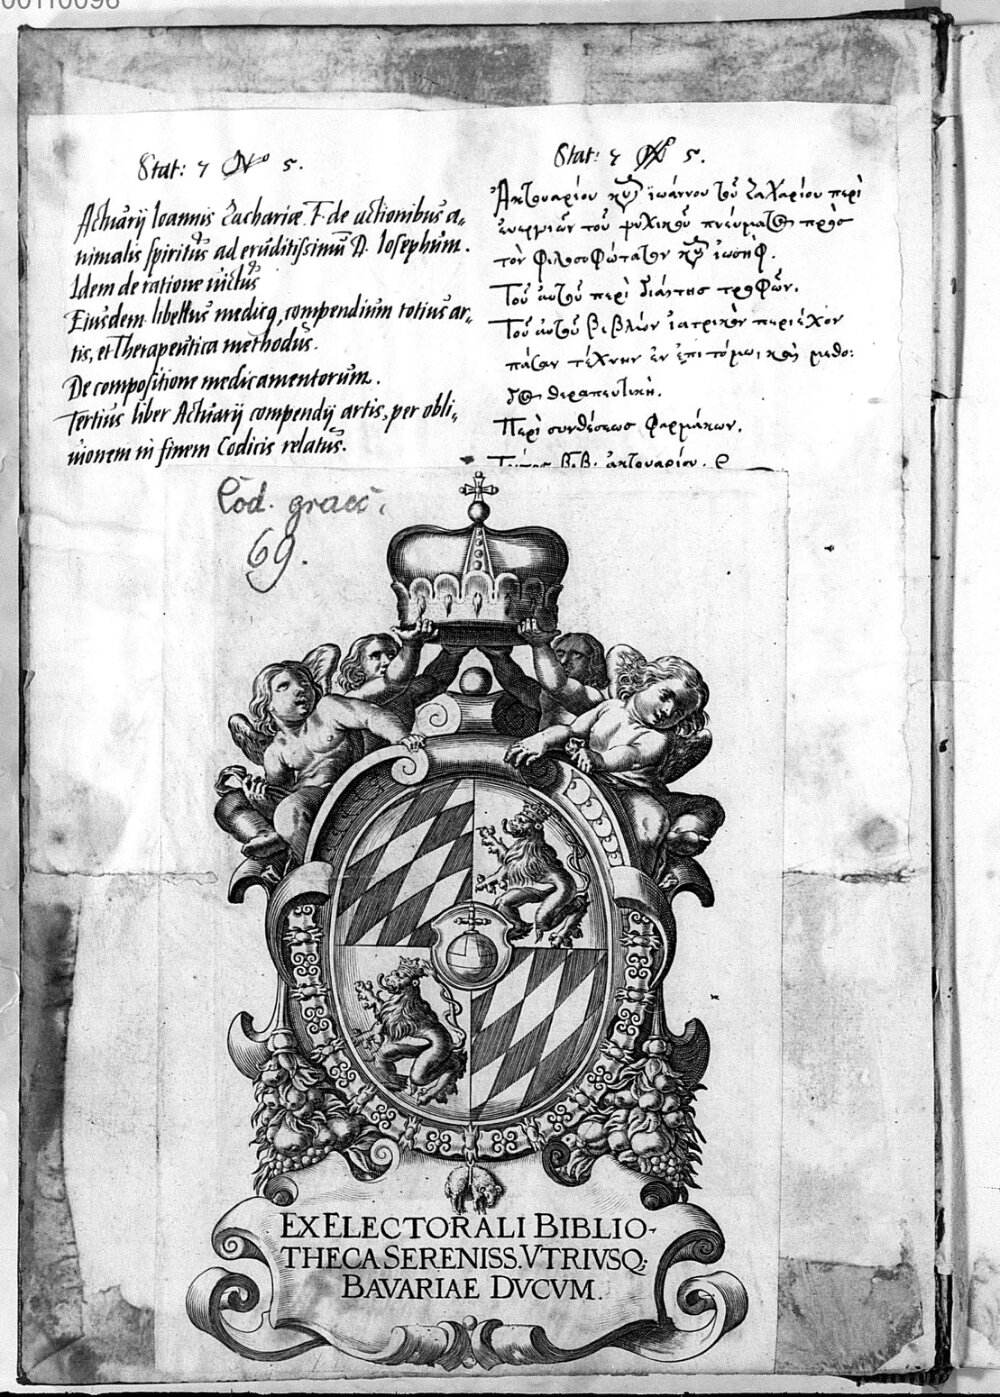 00110096
Stat: 7 No 5.
Actuarij Ioannis Zachariæ F. de actionibus a-
nimalis spiritus ad eruditissimū D. Iosephum.
Idem de ratione uictus
Eiusdem libellus medicq, compendium totius ar-
tis, et Therapeutica methodus.
De compositione medicamentorum.
Tertius liber Actuarij compendij artis, per obli-
uionem in finem Codicis relatus.
Stat: 7 No 5.
Ἀκτουαρίου κυροῦ ἰωάννου τοῦ Ζαχαρίου περὶ
ἐνεργειῶν τοῦ ψυχικοῦ πνεύματος πρὸς
τὸν φιλοσοφώτατον κυρὸν ἰωσήφ.
Τοῦ αὐτοῦ περὶ διαίτης τροφῶν.
Τοῦ αὐτοῦ βιβλίον ἰατρικὸν περιέχον
πᾶσαν τέχνην ἐν ἐπιτόμῳ, καὶ μεθο:
δος θεραπευτική.
Περὶ συνθέσεως φαρμάκων.
ἀκτουαρίου.
Cod. graec.
69.
EX ELECTORALI BIBLIO-
THECA SERENISS. VTRIVSQ;
BAVARIAE DVCVM.